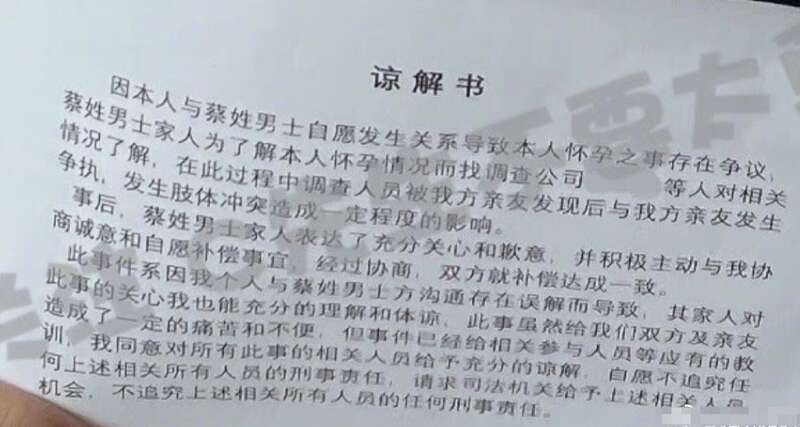 谅解书
因本人与蔡姓男士自愿发生关系导致本人怀孕之事存在争议，
蔡姓男士家人为了解本人怀孕情况而找调查公司 等人对相关
情况了解，在此过程中调查人员被我方亲友发现后与我方亲友发生
争执，发生肢体冲突造成一定程度的影响。
事后，蔡姓男士家人表达了充分关心和歉意，并积极主动与我协
商诚意和自愿补偿事宜，经过协商，双方就补偿达成一致。
此事件系因我个人与蔡姓男士方沟通存在误解而导致，其家人对
此事的关心我也能充分的理解和体谅，此事虽然给我们双方及亲友
造成了一定的痛苦和不便，但事件已经给相关参与人员等应有的教
训，我同意对所有此事的相关人员给予充分的谅解，自愿不追究任
何上述相关所有人员的刑事责任，请求司法机关给予上述相关人员
机会，不追究上述相关所有人员的任何刑事责任。